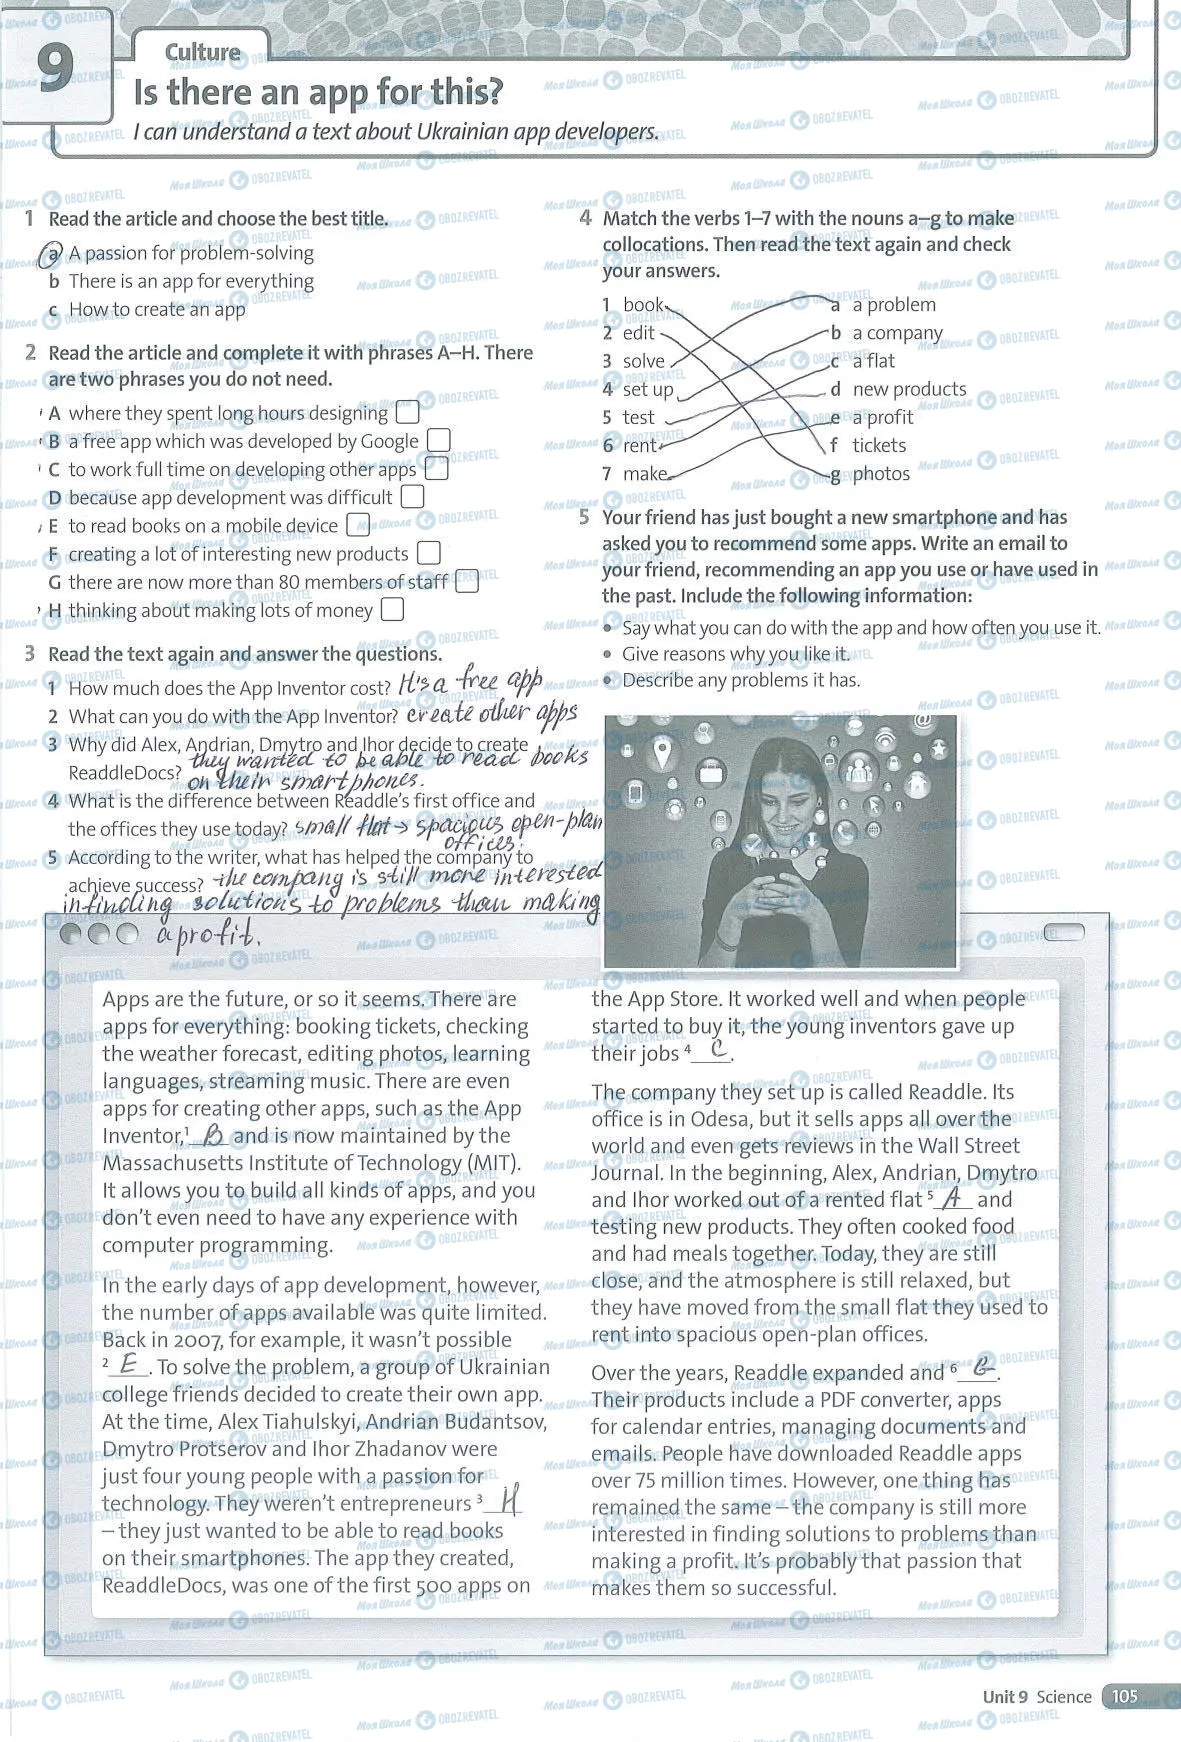 9
Culture
Is there an app for this?
I can understand a text about Ukrainian app developers.
1 Read the article and choose the best title.
a A passion for problem-solving
b There is an app for everything
c How to create an app
2 Read the article and complete it with phrases A–H. There
are two phrases you do not need.
A where they spent long hours designing
B a free app which was developed by Google
C to work full time on developing other apps
D because app development was difficult
E to read books on a mobile device
F creating a lot of interesting new products
G there are now more than 80 members of staff
H thinking about making lots of money
3 Read the text again and answer the questions.
1 How much does the App Inventor cost? It's a free app
2 What can you do with the App Inventor? create other apps
3 Why did Alex, Andrian, Dmytro and Ihor decide to create
ReaddleDocs? they wanted to be able to read books
on their smartphones.
4 What is the difference between Readdle's first office and
the offices they use today? small flat → spacious open-plan
offices.
5 According to the writer, what has helped the company to
achieve success? the company is still more interested
in finding solutions to problems than making
a profit.
4 Match the verbs 1–7 with the nouns a–g to make
collocations. Then read the text again and check
your answers.
1 book a a problem
2 edit b a company
3 solve c a flat
4 set up d new products
5 test e a profit
6 rent f tickets
7 make g photos
5 Your friend has just bought a new smartphone and has
asked you to recommend some apps. Write an email to
your friend, recommending an app you use or have used in
the past. Include the following information:
• Say what you can do with the app and how often you use it.
• Give reasons why you like it.
• Describe any problems it has.
Apps are the future, or so it seems. There are
apps for everything: booking tickets, checking
the weather forecast, editing photos, learning
languages, streaming music. There are even
apps for creating other apps, such as the App
Inventor,¹ B and is now maintained by the
Massachusetts Institute of Technology (MIT).
It allows you to build all kinds of apps, and you
don't even need to have any experience with
computer programming.
In the early days of app development, however,
the number of apps available was quite limited.
Back in 2007, for example, it wasn't possible
² E . To solve the problem, a group of Ukrainian
college friends decided to create their own app.
At the time, Alex Tiahulskyi, Andrian Budantsov,
Dmytro Protserov and Ihor Zhadanov were
just four young people with a passion for
technology. They weren't entrepreneurs ³ H
– they just wanted to be able to read books
on their smartphones. The app they created,
ReaddleDocs, was one of the first 500 apps on
the App Store. It worked well and when people
started to buy it, the young inventors gave up
their jobs ⁴ C .
The company they set up is called Readdle. Its
office is in Odesa, but it sells apps all over the
world and even gets reviews in the Wall Street
Journal. In the beginning, Alex, Andrian, Dmytro
and Ihor worked out of a rented flat ⁵ A and
testing new products. They often cooked food
and had meals together. Today, they are still
close, and the atmosphere is still relaxed, but
they have moved from the small flat they used to
rent into spacious open-plan offices.
Over the years, Readdle expanded and ⁶ G .
Their products include a PDF converter, apps
for calendar entries, managing documents and
emails. People have downloaded Readdle apps
over 75 million times. However, one thing has
remained the same – the company is still more
interested in finding solutions to problems than
making a profit. It's probably that passion that
makes them so successful.
Unit 9 Science 105
Моя Школа OBOZREVATEL